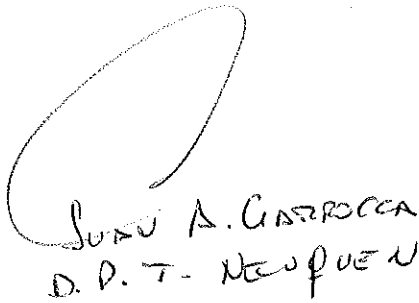 JUAN A. GARROCCA
D.P.T. - NEUQUEN